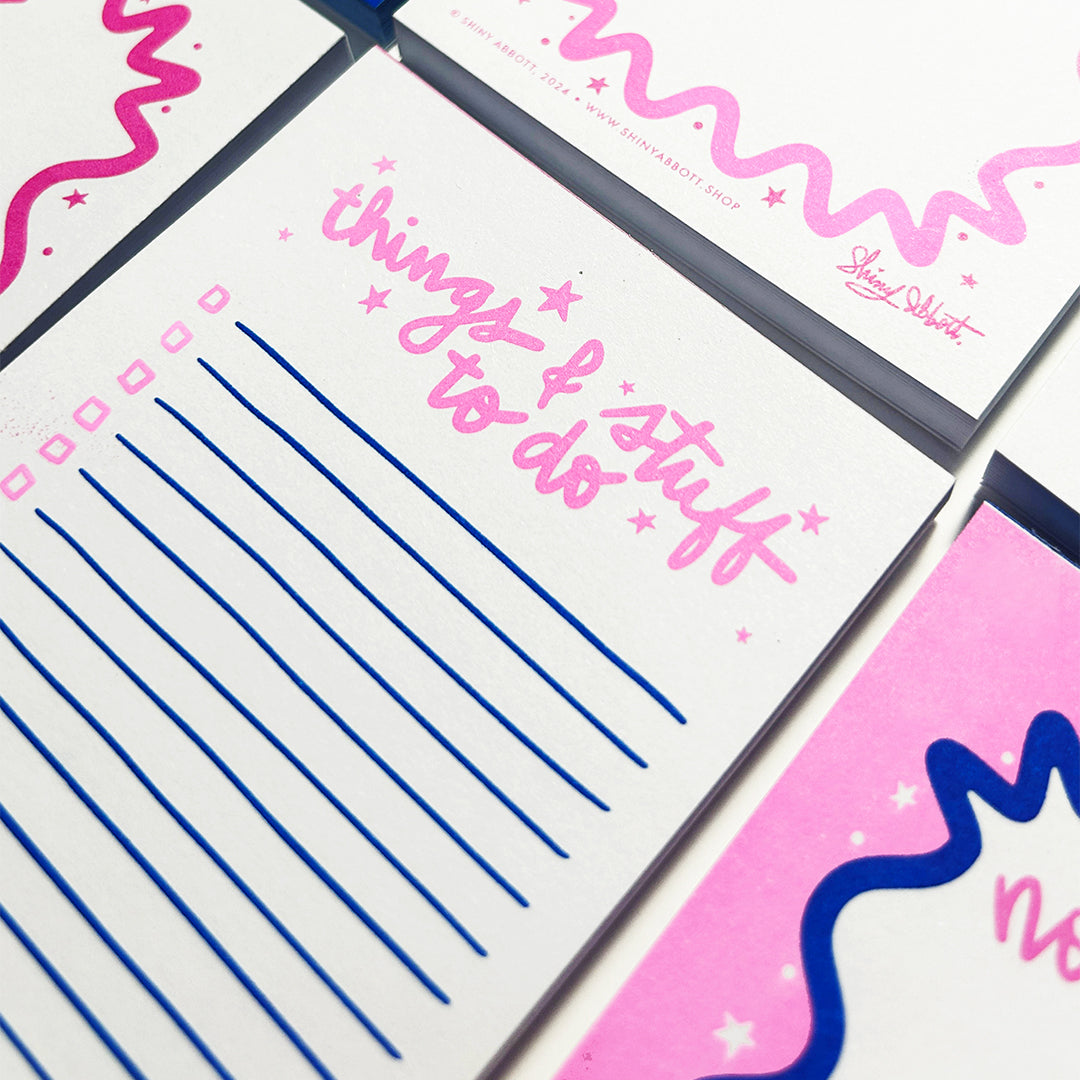 © SHINY ABBOTT, 2024 • WWW.SHINYABBOTT.SHOP
Shiny Abbott.
things & stuff
to do
no